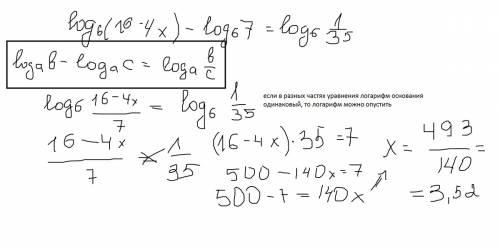 log₆(16-4x) - log₆7 = log₆ 1/35
logₐb - logₐc = logₐ b/c
log₆ (16-4x)/7 = log₆ 1/35
если в разных частях уравнения логарифм основания
одинаковый, то логарифм можно опустить
(16-4x)/7 = 1/35
(16-4x)·35 = 7
500 - 140x = 7
500 - 7 = 140x
x = 493/140 =
= 3,52